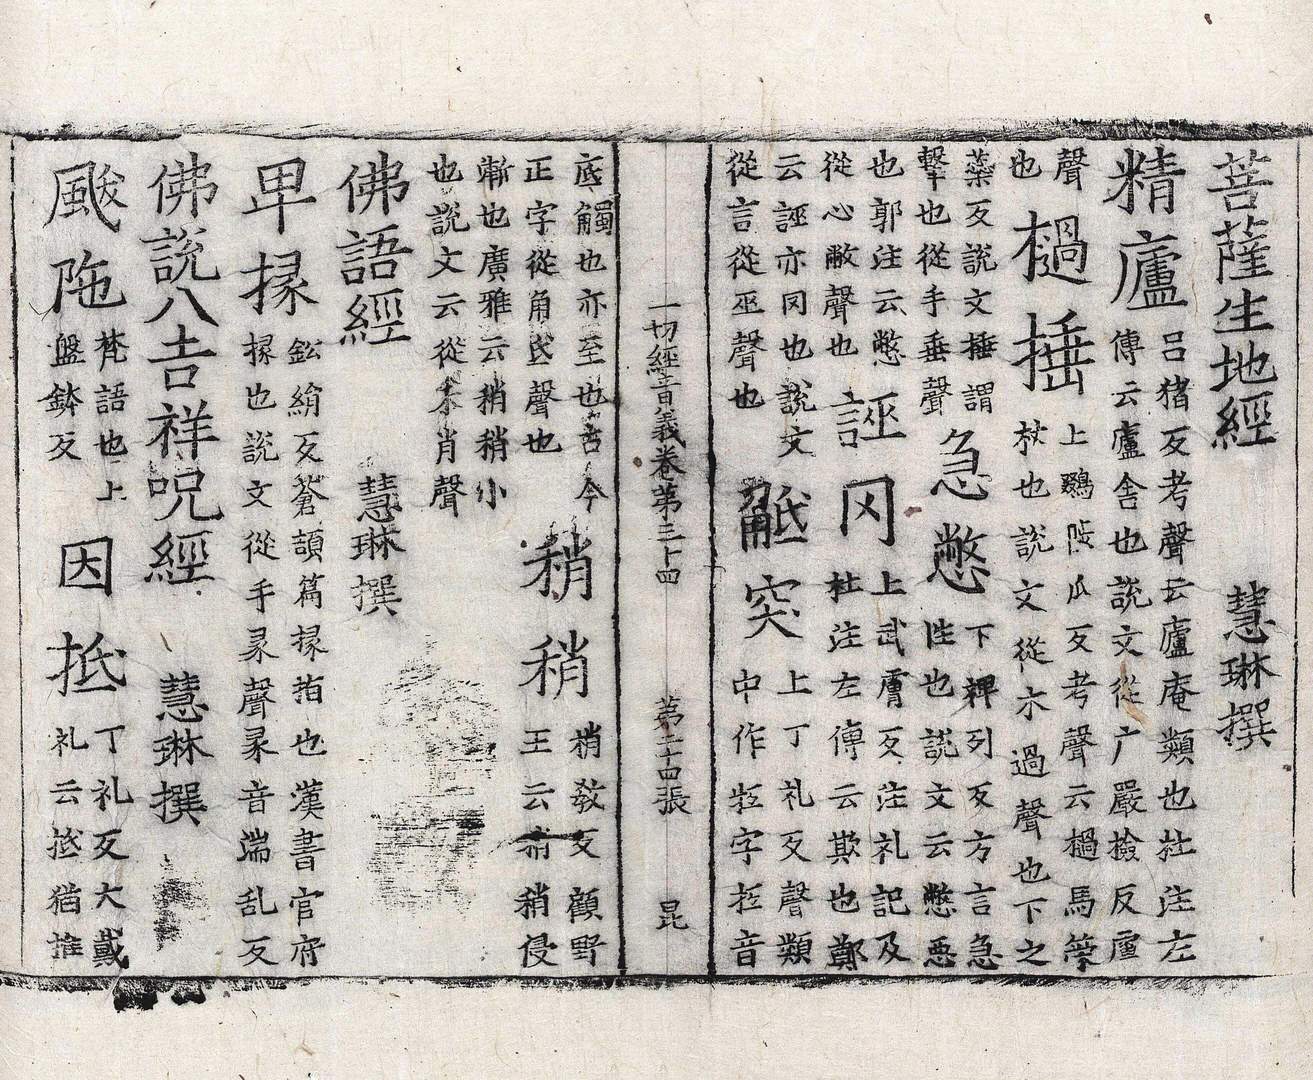 菩薩生地經　慧琳撰
精廬
呂猪反考聲云廬庵類也杜注左
傳云廬舍也說文從广嚴撿反廬
聲
也
檛捶
上 瓜反考聲云檛馬䇲
杖也說文從木過聲也下之
蘂反說文捶謂
擊也從手垂聲
急憋
下裨列反方言急
性也說文云憋惡
也郭注云憋
從心敝聲也
誣罔
上武膚反注礼記及
杜注左傳云欺也鄭
云誣亦罔也說文
從言從巫聲也
觝突
上丁礼反聲類
中作抵字抵音
一切經音義卷第三十四　第二十四張　昆
底觸也亦至也古今
正字從角氐聲也
稍稍
稍教反顧野
王云稍稍侵
漸也廣雅云稍稍小
也說文云從禾肖聲
佛語經　慧琳撰
卑掾
鈆絹反蒼頡篇掾指也漢書官府
掾也說文從手彖聲彖音端乱反
佛說八吉祥呪經　慧琳撰
颰陁
梵語也上
盤鉢反
因抵
丁礼反大戴
礼云抵猶推